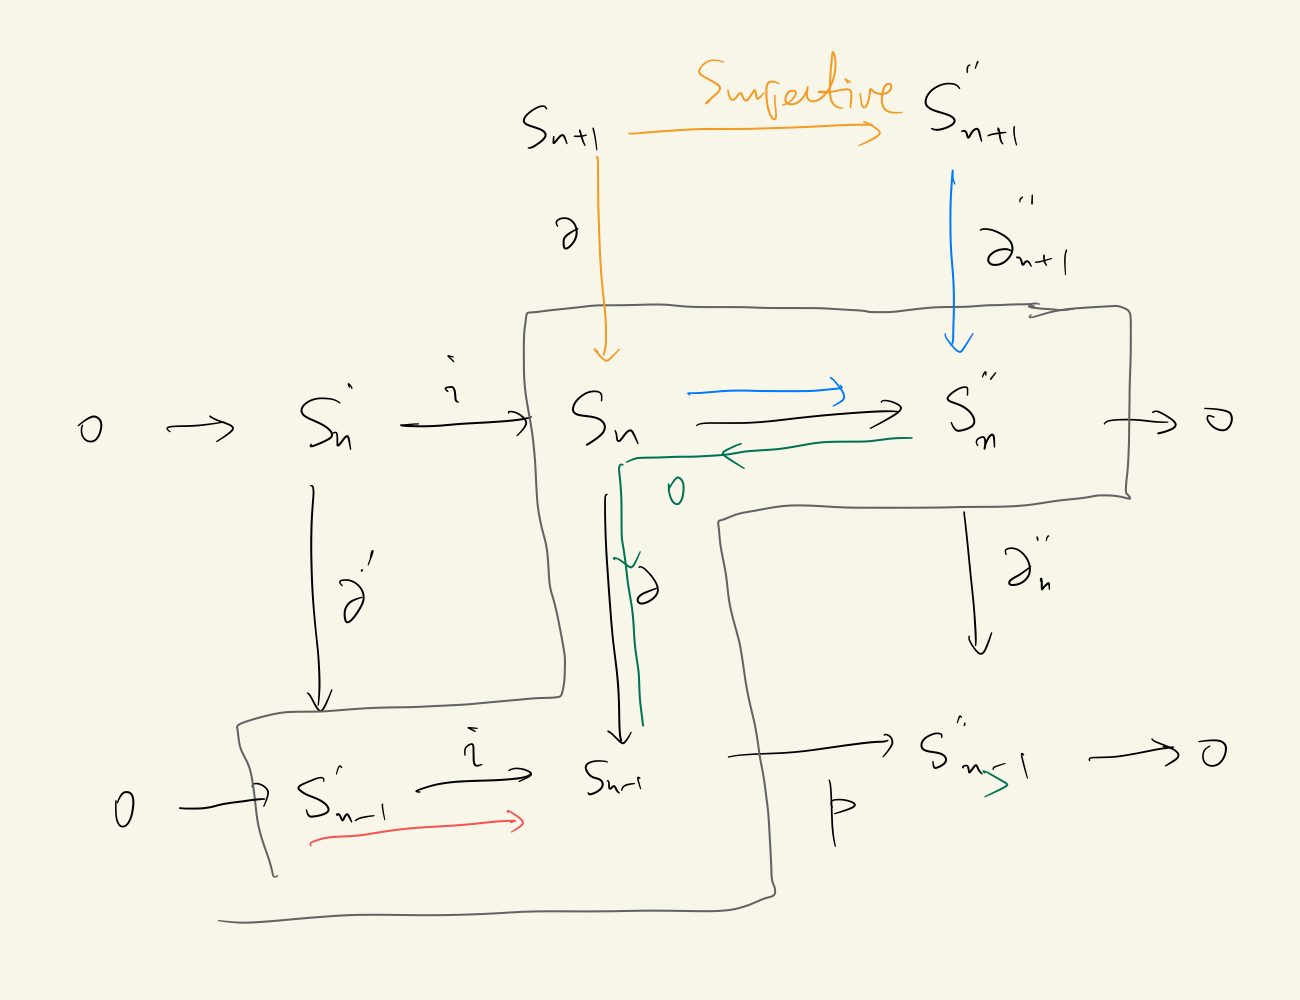 Surjective
S_{n+1} S''_{n+1}
∂ ∂''_{n+1}
0 → S'_n i S_n → S''_n → 0
0
∂' ∂ ∂''_n
0 → S'_{n-1} i S_{n-1} → S''_{n-1} → 0
p